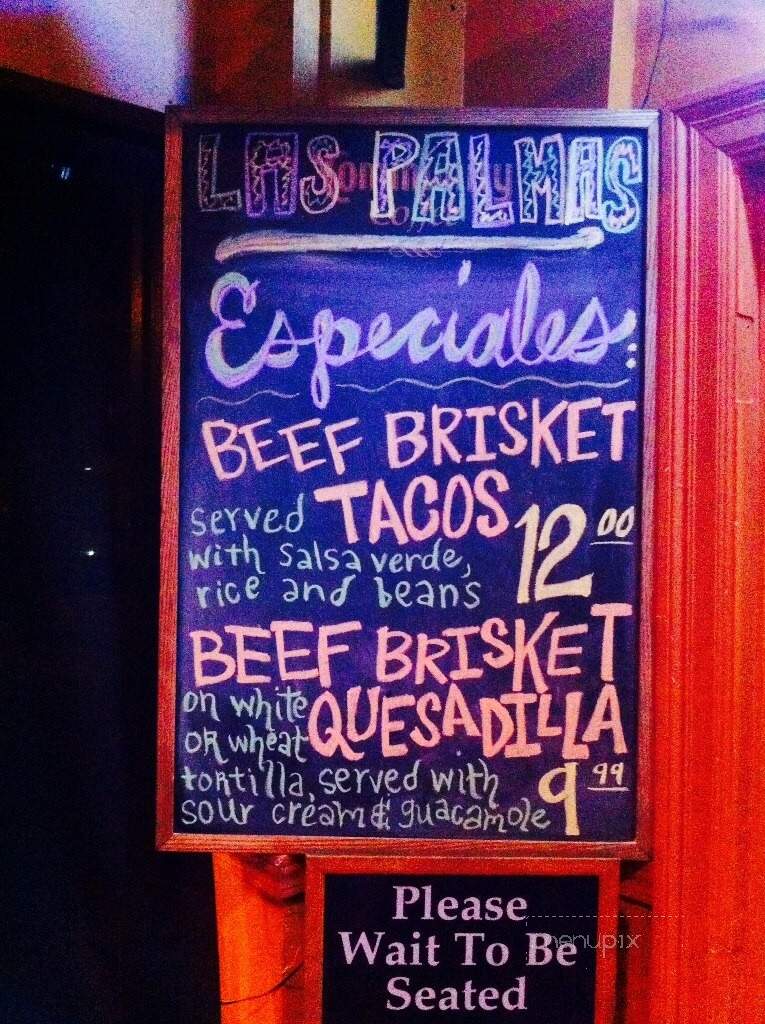 LAS PALMAS
Community
Coffee
Especiales:
BEEF BRISKET
TACOS
served
with salsa verde,
rice and beans
12 00
BEEF BRISKET
QUESADILLA
on white
or wheat
tortilla, served with
sour cream & guacamole
9 99
Please
Wait To Be
Seated
menupix